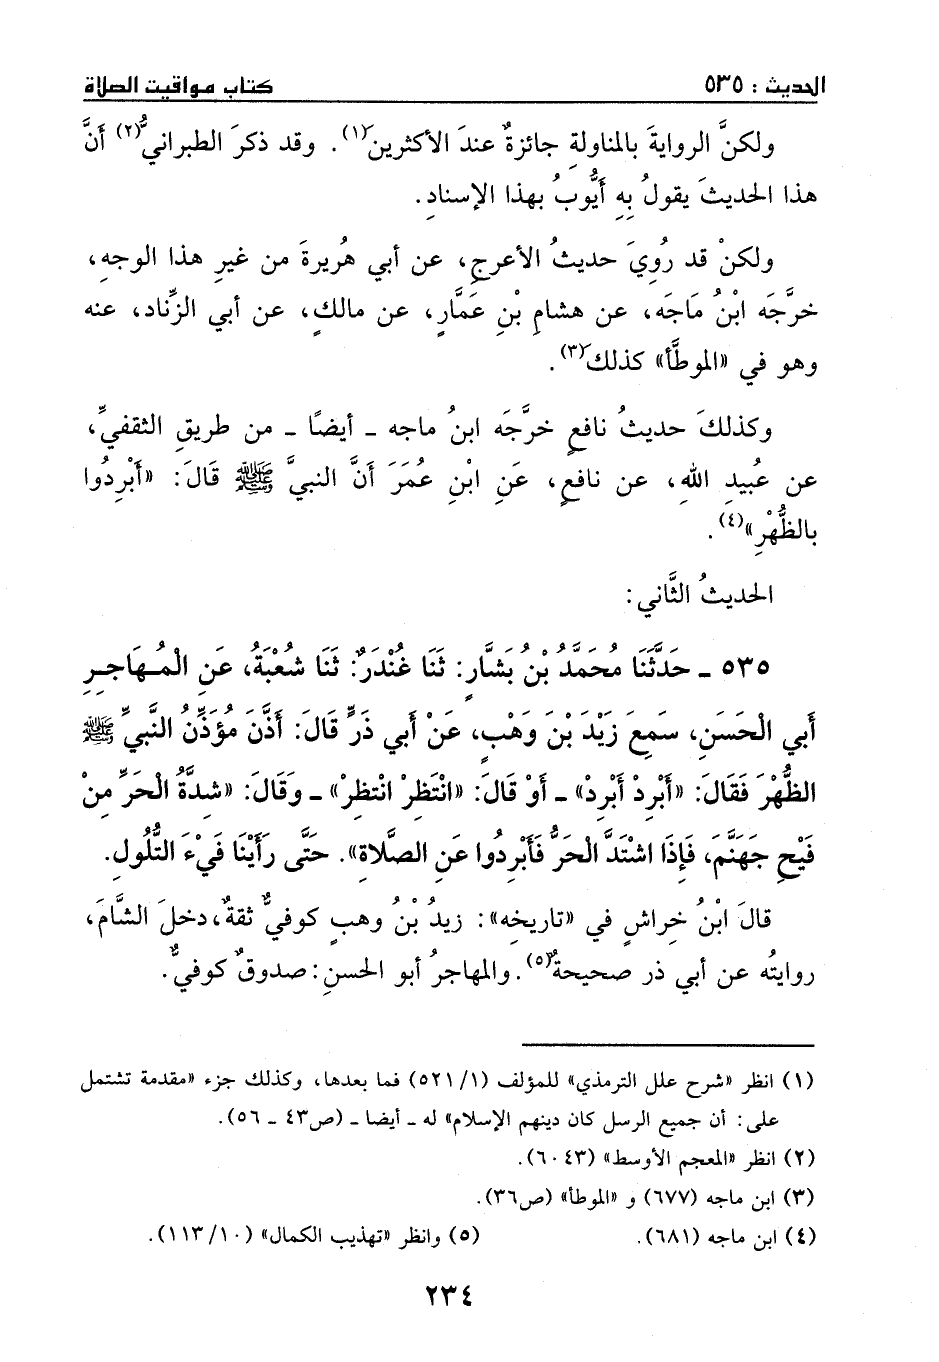 الحديث : ٥٣٥ كتاب مواقيت الصلاة
ولكنَّ الروايةَ بالمناولةِ جائزةٌ عندَ الأكثرين(١). وقد ذكرَ الطبرانيُّ(٢) أنَّ
هذا الحديثَ يقولُ بِهِ أيُّوبُ بهذا الإسنادِ.
ولكنْ قد رُوِيَ حديثُ الأعرجِ، عن أبي هُريرةَ من غيرِ هذا الوجهِ،
خرَّجَه ابْنُ مَاجَه، عن هشامِ بْنِ عَمَّارٍ، عن مالكٍ، عن أبي الزِّناد، عنه
وهو في «الموطَّأ» كذلك(٣).
وكذلكَ حديثُ نافعٍ خرَّجَه ابنُ ماجه ـ أيضًا ـ من طريقِ الثقفيِّ،
عن عُبيدِ اللهِ، عن نافعٍ، عَنِ ابْنِ عُمَرَ أنَّ النبيَّ ﷺ قَالَ: «أَبْرِدُوا
بالظُّهْرِ»(٤).
الحديثُ الثَّاني:
٥٣٥ ـ حَدَّثَنَا مُحَمَّدُ بْنُ بَشَّارٍ: ثَنَا غُنْدَرٌ: ثَنَا شُعْبَةُ، عَنِ الْمُهَاجِرِ
أَبي الْحَسَنِ، سَمِعَ زَيْدَ بْنَ وَهْبٍ، عَنْ أَبي ذَرٍّ قَالَ: أَذَّنَ مُؤَذِّنُ النَّبيِّ ﷺ
الظُّهْرَ فَقَالَ: «أَبْرِدْ أَبْرِدْ» ـ أَوْ قَالَ: «انْتَظِرْ انْتظِرْ» ـ وقَالَ: «شدَّةُ الْحَرِّ مِنْ
فَيْحِ جَهَنَّمَ، فَإِذَا اشْتَدَّ الْحَرُّ فَأَبْرِدُوا عَنِ الصَّلَاةِ». حَتَّى رَأَيْنَا فَيْءَ التُّلُولِ.
قالَ ابْنُ خِراشٍ في «تاريخه»: زيدُ بْنُ وهبٍ كوفيٌّ ثقةٌ، دخلَ الشَّامَ،
روايتُه عن أبي ذر صحيحةٌ(٥). والمهاجرُ أبو الحسنِ: صدوقٌ كوفيٌّ.
(١) انظر «شرح علل الترمذي» للمؤلف (١/ ٥٢١) فما بعدها، وكذلك جزء «مقدمة تشتمل
على: أن جميع الرسل كان دينهم الإسلام» له ـ أيضا ـ (ص٤٣ ـ ٥٦).
(٢) انظر «المعجم الأوسط» (٦٠٤٣).
(٣) ابن ماجه (٦٧٧) و «الموطأ» (ص٣٦).
(٤) ابن ماجه (٦٨١). (٥) وانظر «تهذيب الكمال» (١٠/ ١١٣).
٢٣٤